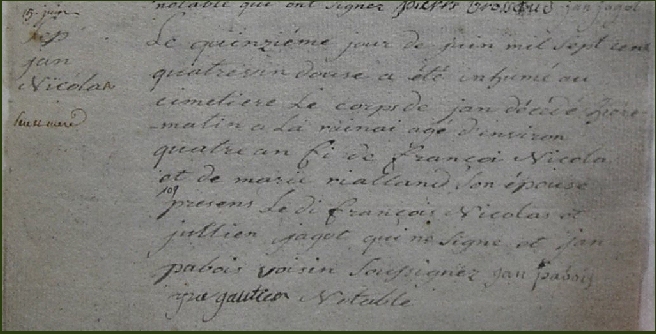 notable qui ont signez pierre jan jagot
15 juin
sep
jan
Nicolas
Le quinzième jour de juin mil sept cens
quatrevin douse a été inhumé au
cimetiere Le corps de jan décédé
matin a La minai agé d'environ
quatre an fi de françoi Nicola
et de marie rialland Son épouse
presens Le di françois Nicolas et
jullien jagot qui ne signe et jan
pabois voisin Soussignez jan pabois
gautier Notable